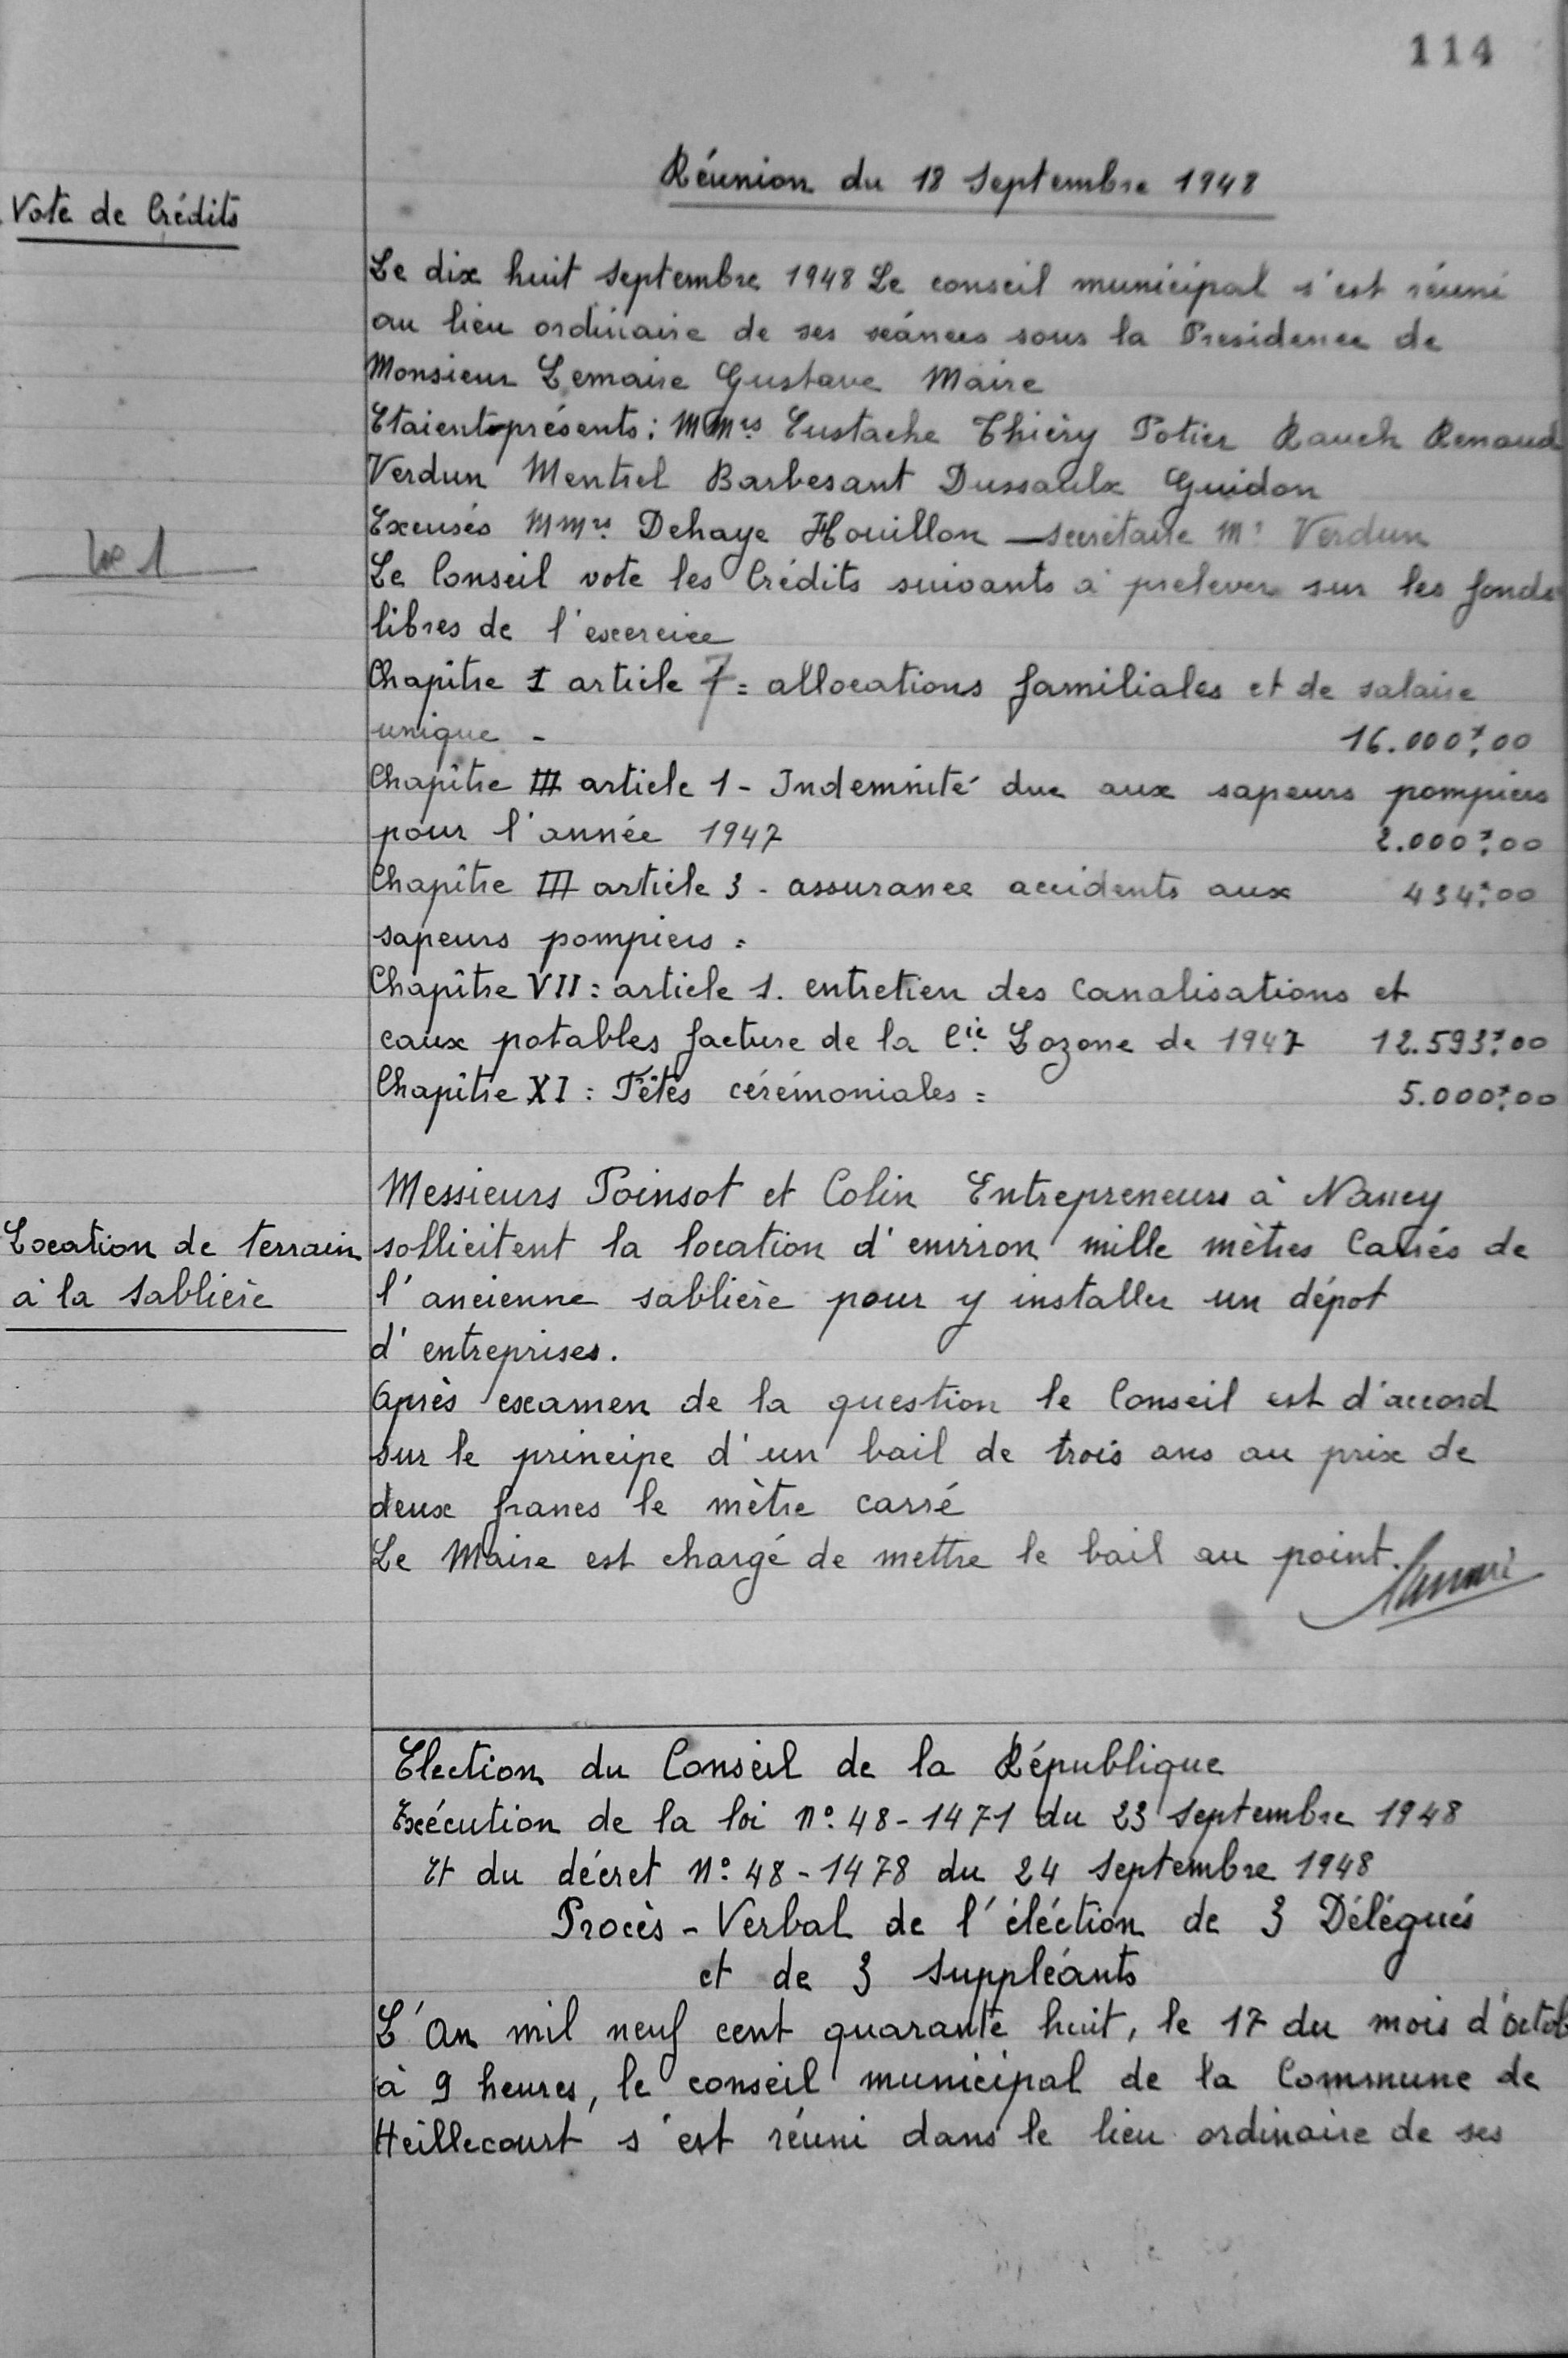 114
Réunion du 18 Septembre 1948
Vote de Crédits
Le dix huit septembre 1948 Le conseil municipal s'est réuni
au lieu ordinaire de ses séances sous la Presidence de
Monsieur Lemaire Gustave Maire
Etaient présents : MMrs Eustache Thiéry Potier Rauch Renaud
Verdun Mentrel Barbesant Dussaulx Guidon
Excusés MMrs Dehaye Houillon — secrétaire Mr Verdun
1
Le Conseil vote les Crédits suivants à prelever sur les fonds
libres de l'exercice
Chapître I article 7 = allocations familiales et de salaire
unique - 16.000f,00
Chapître III article 1 - Indemnité due aux sapeurs pompiers
pour l'année 1947 2.000f,00
Chapître III article 3 - assurance accidents aux 434f,00
sapeurs pompiers =
Chapître VII : article 1. entretien des canalisations et
eaux potables facture de la Cie Lozone de 1947 12.593f,00
Chapître XI : Fêtes cérémoniales = 5.000f,00
Messieurs Poinsot et Colin Entrepreneurs à Nancy
Location de terrain
à la Sablière
sollicitent la location d'environ mille mètres Carrés de
l'ancienne sablière pour y installer un dépot
d'entreprises.
Après examen de la question le Conseil est d'accord
sur le principe d'un bail de trois ans au prix de
deux francs le mètre carré
Le Maire est chargé de mettre le bail au point.
Election du Conseil de la République
Exécution de la loi N° 48-1471 du 23 septembre 1948
Et du décret N° 48-1478 du 24 septembre 1948
Procès-Verbal de l'éléction de 3 Délégués
et de 3 suppléants
L'An mil neuf cent quarante huit, le 17 du mois d'octob
à 9 heures, le conseil municipal de la Commune de
Heillecourt s'est réuni dans le lieu ordinaire de ses